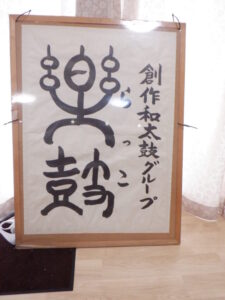 創作和太鼓グループ
らっこ
樂鼓